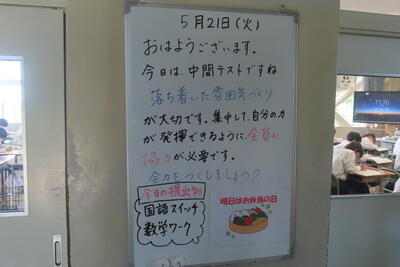 5月21日(火)
おはようございます。
今日は、中間テストですね
落ち着いた雰囲気づくり
が大切です。集中して、自分の力
が発揮できるように、全員の
協力が必要です。
全力をつくしましょう?
今日の提出物
国語スイッチ
数学ワーク
明日はお弁当の日